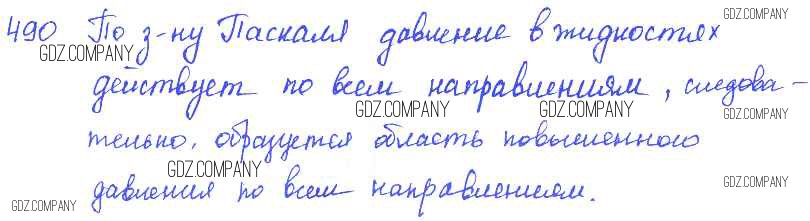 490 По з-ну Паскаля давление в жидкостях
действует по всем направлениям, следова-
тельно, образуется область повышенного
давления по всем направлениям.
GDZ.COMPANY
GDZ.COMPANY
GDZ.COMPANY
GDZ.COMPANY
GDZ.COMPANY
GDZ.COMPANY
GDZ.COMPANY
GDZ.COMPANY